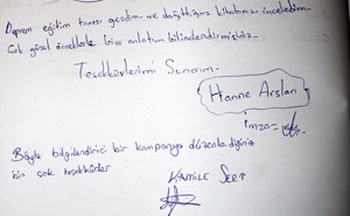 Deprem eğitim tırını gezdim. ve dağıttığınız kitabınızı inceledim.
Çok güzel örneklerle bize anlatım bilinclendirmişsiniz.
Teşekkürlerimi Sunarım.
Hanne Arslan
imza=
Böyle bilgilendirici bir kampanya düzenlediğiniz
için çok teşekkürler
KAMİLE SERT